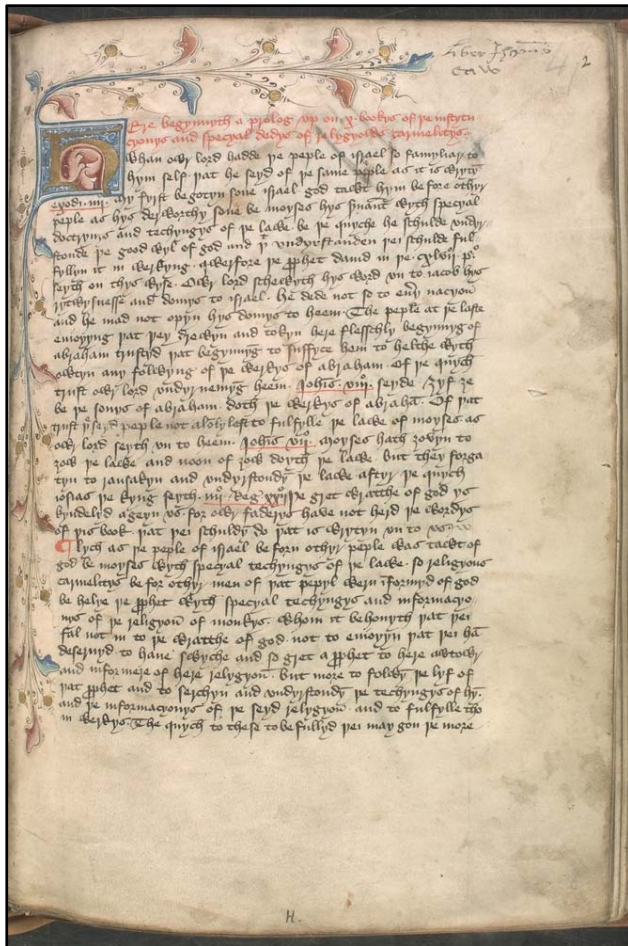 Liber Johannis
2
Ere begynnyth a prolog vp on x bookys of þe institu
cyonys and specyal dedys of relygyows carmelitys.
Whan owr lord hadde þe peple of israel so famyliar to
hym self þat he seyd of þe same peple as it is wrytȳ
exodi. iiij. my fyrst begotyn sone israel god tawt hym be fore othyr
peple as hys derworthy sone be moyses hys s̄uaunt wyth specyal
doctrynys and techyngys of þe lawe. be þe qwyche he schulde vndyr
stonde þe good wyl of god and þt vndyrstanden þei schulde ful
fyllyn it in werkyng. qwerfore þe ꝓphet dauid in þe. cxlvij. ps.
seyth on thys wyse. Owr lord schewyth hys word vn to iacob hys
rytwysnesse and domys to israel. he dede not so to eūy nacyon
and he mad not opyn hys domys to heem. The peple at þe laste
enioyyng þat þey drewyn and tokyn here flesschly begynnyng of
abraham trustyd þat begynnȳg to suffyce hem to helthe wyth
owtyn any folwyng of þe werkys of abraham. Of þe qwych
trust owr lord vndyrnemȳg heem. Johis. viij. seyde. ȝyf ȝe
be þe sonys of abraham. doth þe werkys of abrahā. Of þat
trust þe seyd peple not aloonly left to fulfylle þe lawe of moyses as
owr lord seyth vn to heem. Johis. vij. moyses hath ȝovyn to
ȝow þe lawe and noon of ȝow doyth þe lawe. but they forga
tyn to ransakyn and vndyrstondȳ þe lawe aftyr þe qwych
iosias þe kyng seyth. iiij. Reg. xxij. þe gret wratthe of god ys
kyndelyd ageyn vs. for owr faderys have not herd þe wordys
of þis book. þat þei schuldȳ do þat is wrytyn vn to vs.
¶ Lych as þe peple of israel be forn othyr peple was tawt of
god be moyses wyth specyal techyngys of þe lawe. so religyous
carmelitys be for othyr men of þat pepyl wern īformyd of god
be helye þe ꝓphet wyth specyal techyngys and informacyo
nys of þe religyon of monkys. whom it behouyth þat þei
fal not in to þe wratthe of god. not to enioyyn þat þei hā
deseruyd to haue swyche and so gret a ꝓphet to here awtowr
and informere of here relygyon. but more to folwȳ þe lyf of
þat ꝓphet and to serchyn and vndyrstondȳ þe techyngys of hȳ.
and þe informacyonys of þe seyd relygyon. and to fulfylle tho
in werkys. The qwych to these to be fullyd þei may gon þe more
H.